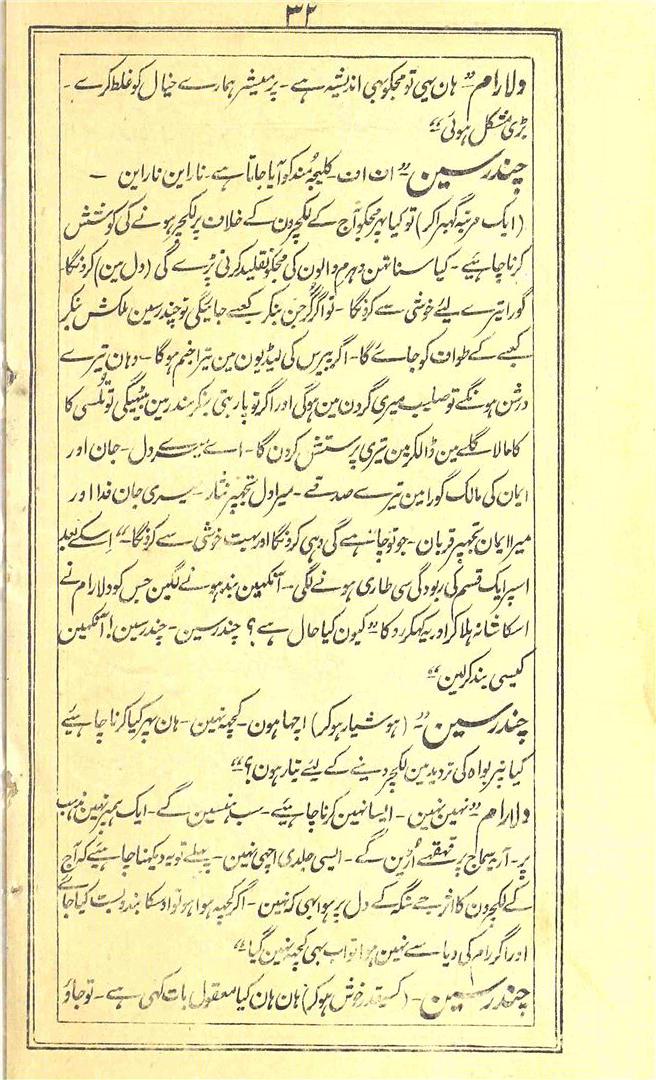 ۳۲
دلارام "ہان یہی تو مجکو بہی اندیشہ ہے - پرمیشر ہمارے خیال کو غلط کرے -
بڑی مشکل ہوئی"
چندرسین - "ان ان - کلیجہ مُنہ کو آیا جاتا ہے - نارابن ناراین -
(ایک مرتبہ گہبرا کر) تو کیا پہر مجکو آج کے لکچرون کے خلاف پر لکچرر ہونے کی کوشش
کرنا چاہیئے - کیا سناتہن دہرم والون کی مجکو تقلید کرنی پڑے گی (دل مین) کرونگا -
گورا تیرے لئے خوشی سے کرونگا - تو اگر گرجن بنکر کیسے جائیگی تو چندرسین بنکر
کیسے کے طواف کو جائے گا - اگر پیرس کی لیڈیون مین تیرا جنم ہوگا - وہان تیرے
درشن ہونگے تو صلیب میری گردن مین ہوگی اور اگر تو پاربتی بنکر مندر مین بیٹہیگی تو تُلسی کا
کا مالا گلے مین ڈالکر مین تیری پرستش کرون گا - اے میرے دل - جان اور
ایمان کی مالک گورا مین تیرے صدقے - میرا دل تجہپر نثار - میری جان فدا اور
میرا ایمان تجہپر قربان - جو تو چاہے گی وہی کرونگا اور بہت خوشی سے کرونگا - " اِسکے بعد
اسپر ایک قسم کی ربودگی سی طاری ہونے لگی - آنکہین بند ہونے لگین جس کو دلارام نے
اسکا شانہ ہلا کر اور یہ کہکر روکا "کیون کیا حال ہے؟ چندرسین - چندرسین! آنکہین
کیسی بند کرلین"
چندرسین - "(ہوشیار ہوکر) اچہا ہون - کچہہ نہین - ہان پہر کیا کرنا چاہئیے
کیا بدہوا بواہ کی تردید مین لکچر دینے کے لیئے تیار ہون؟"
دلارام "نہین نہین - ایسا نہین کرنا چاہئیے - سب ہنسین گے - ایک ہمپر نہین مذہب
پر - آریہ سماج پر قہقہے اُڑین گے - ایسی جلدی اچہی نہین - پہلے تو یہ دیکہنا چاہئیے کہ آج
کے لکچرون کا اثر جے سنگہ کے دل پر ہوا بہی کہ نہین - اگر کچہہ ہوا ہو تو اوسکا بندوبست کیا جائے
اور اگر رام کی دیا سے نہین ہوا تو اب بہی کچہہ نہین گیا"
چندرسین - (کسیقدر خوش ہوکر) ہان ہان کیا معقول بات کہی ہے - تو جاؤ